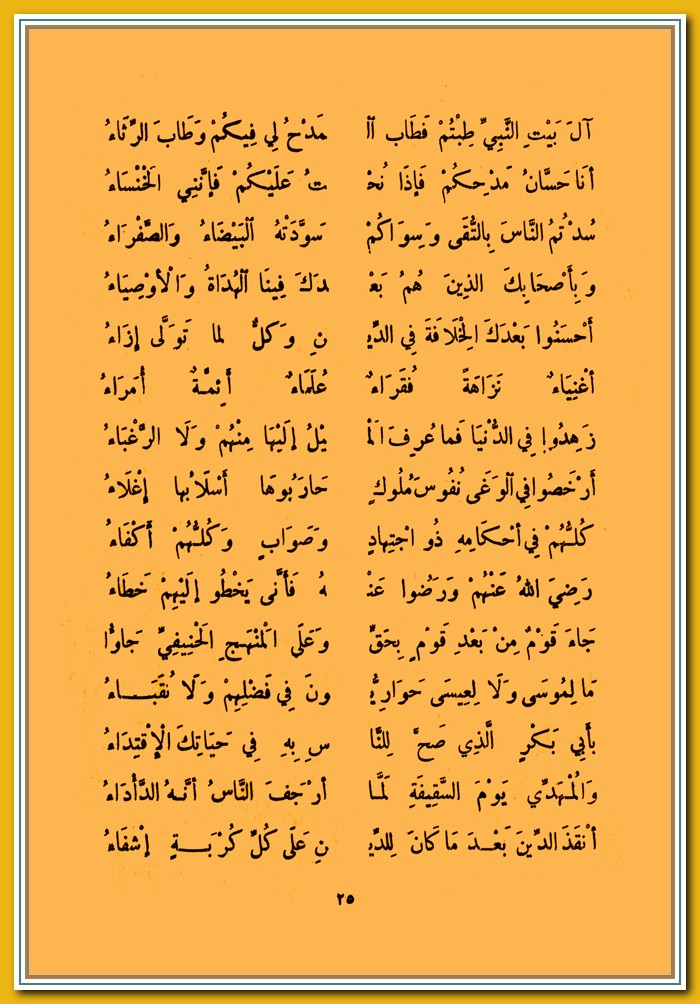 آلَ بَيْتِ النَّبِيِّ طِبْتُمْ فَطَابَ اَلْ مَدْحُ لِي فِيكُمْ وَطَابَ الرِّثَاءُ
أَنَا حَسَّانُ مَدْحِكُمْ فَإِذَا نُحْ تُ عَلَيْكُمْ فَإِنَّنِي الْخَنْسَاءُ
سُدْتُمُ النَّاسَ بِالتُّقَى وَسِوَاكُمْ سَوَّدَتْهُ الْبَيْضَاءُ وَالصَّفْرَاءُ
وَبِأَصْحَابِكَ الذِينَ هُمُ بَعْ دَكَ فِينَا الْهُدَاةُ وَالْأَوْصِيَاءُ
أَحْسَنُوا بَعْدَكَ الْخِلَافَةَ فِي الدِّي نِ وَكلٌّ لما تَوَلَّى إِزَاءُ
أَغْنِيَاءٌ نَزَاهَةً فُقَرَاءٌ عُلَمَاءٌ أَئِمَّةٌ أُمَرَاءُ
زَهِدُوا فِي الدُّنْيَا فَما عُرِفَ الْمَ يْلُ إِلَيْهَا مِنْهُمْ وَلَا الرَّغْبَاءُ
أَرْخَصُوا فِي الْوَغَى نُفُوسَ مُلُوكٍ حَارَبُوهَا أَسْلَابُها إِغْلَاءُ
كُلُّهُمْ فِي أَحْكَامِهِ ذُو اجْتِهادٍ وَصَوَابٍ وَكُلُّهُمْ أَكْفَاءُ
رَضِيَ اللهُ عَنْهُمْ وَرَضُوا عَنْ هُ فَأَنَّى يَخْطُو إِلَيْهِمْ خَطَاءُ
جَاءَ قَوْمٌ مِنْ بَعْدِ قَوْمٍ بِحَقٍّ وَعَلَى الْمَنْهَجِ الْحَنِيفِيِّ جَاؤُا
مَا لِمُوسَى وَلَا لِعِيسَى حَوَارِيُّ ونَ فِي فَضْلِهِمْ وَلَا نُقَبَاءُ
بِأَبِي بَكْرٍ الَّذِي صَحَّ لِلنَّا سِ بِهِ فِي حَيَاتِكَ الْإِقْتِدَاءُ
وَالْمَهَدِّي يَوْمَ السَّقِيفَةِ لَمَّا أَرْجَفَ النَّاسُ أَنَّهُ الدَّأْدَاءُ
أَنْقَذَ الدِّينَ بَعْدَ مَا كَانَ لِلدِّي نِ عَلَى كُلِّ كُرْبَةٍ إِشْفَاءُ
٢٥